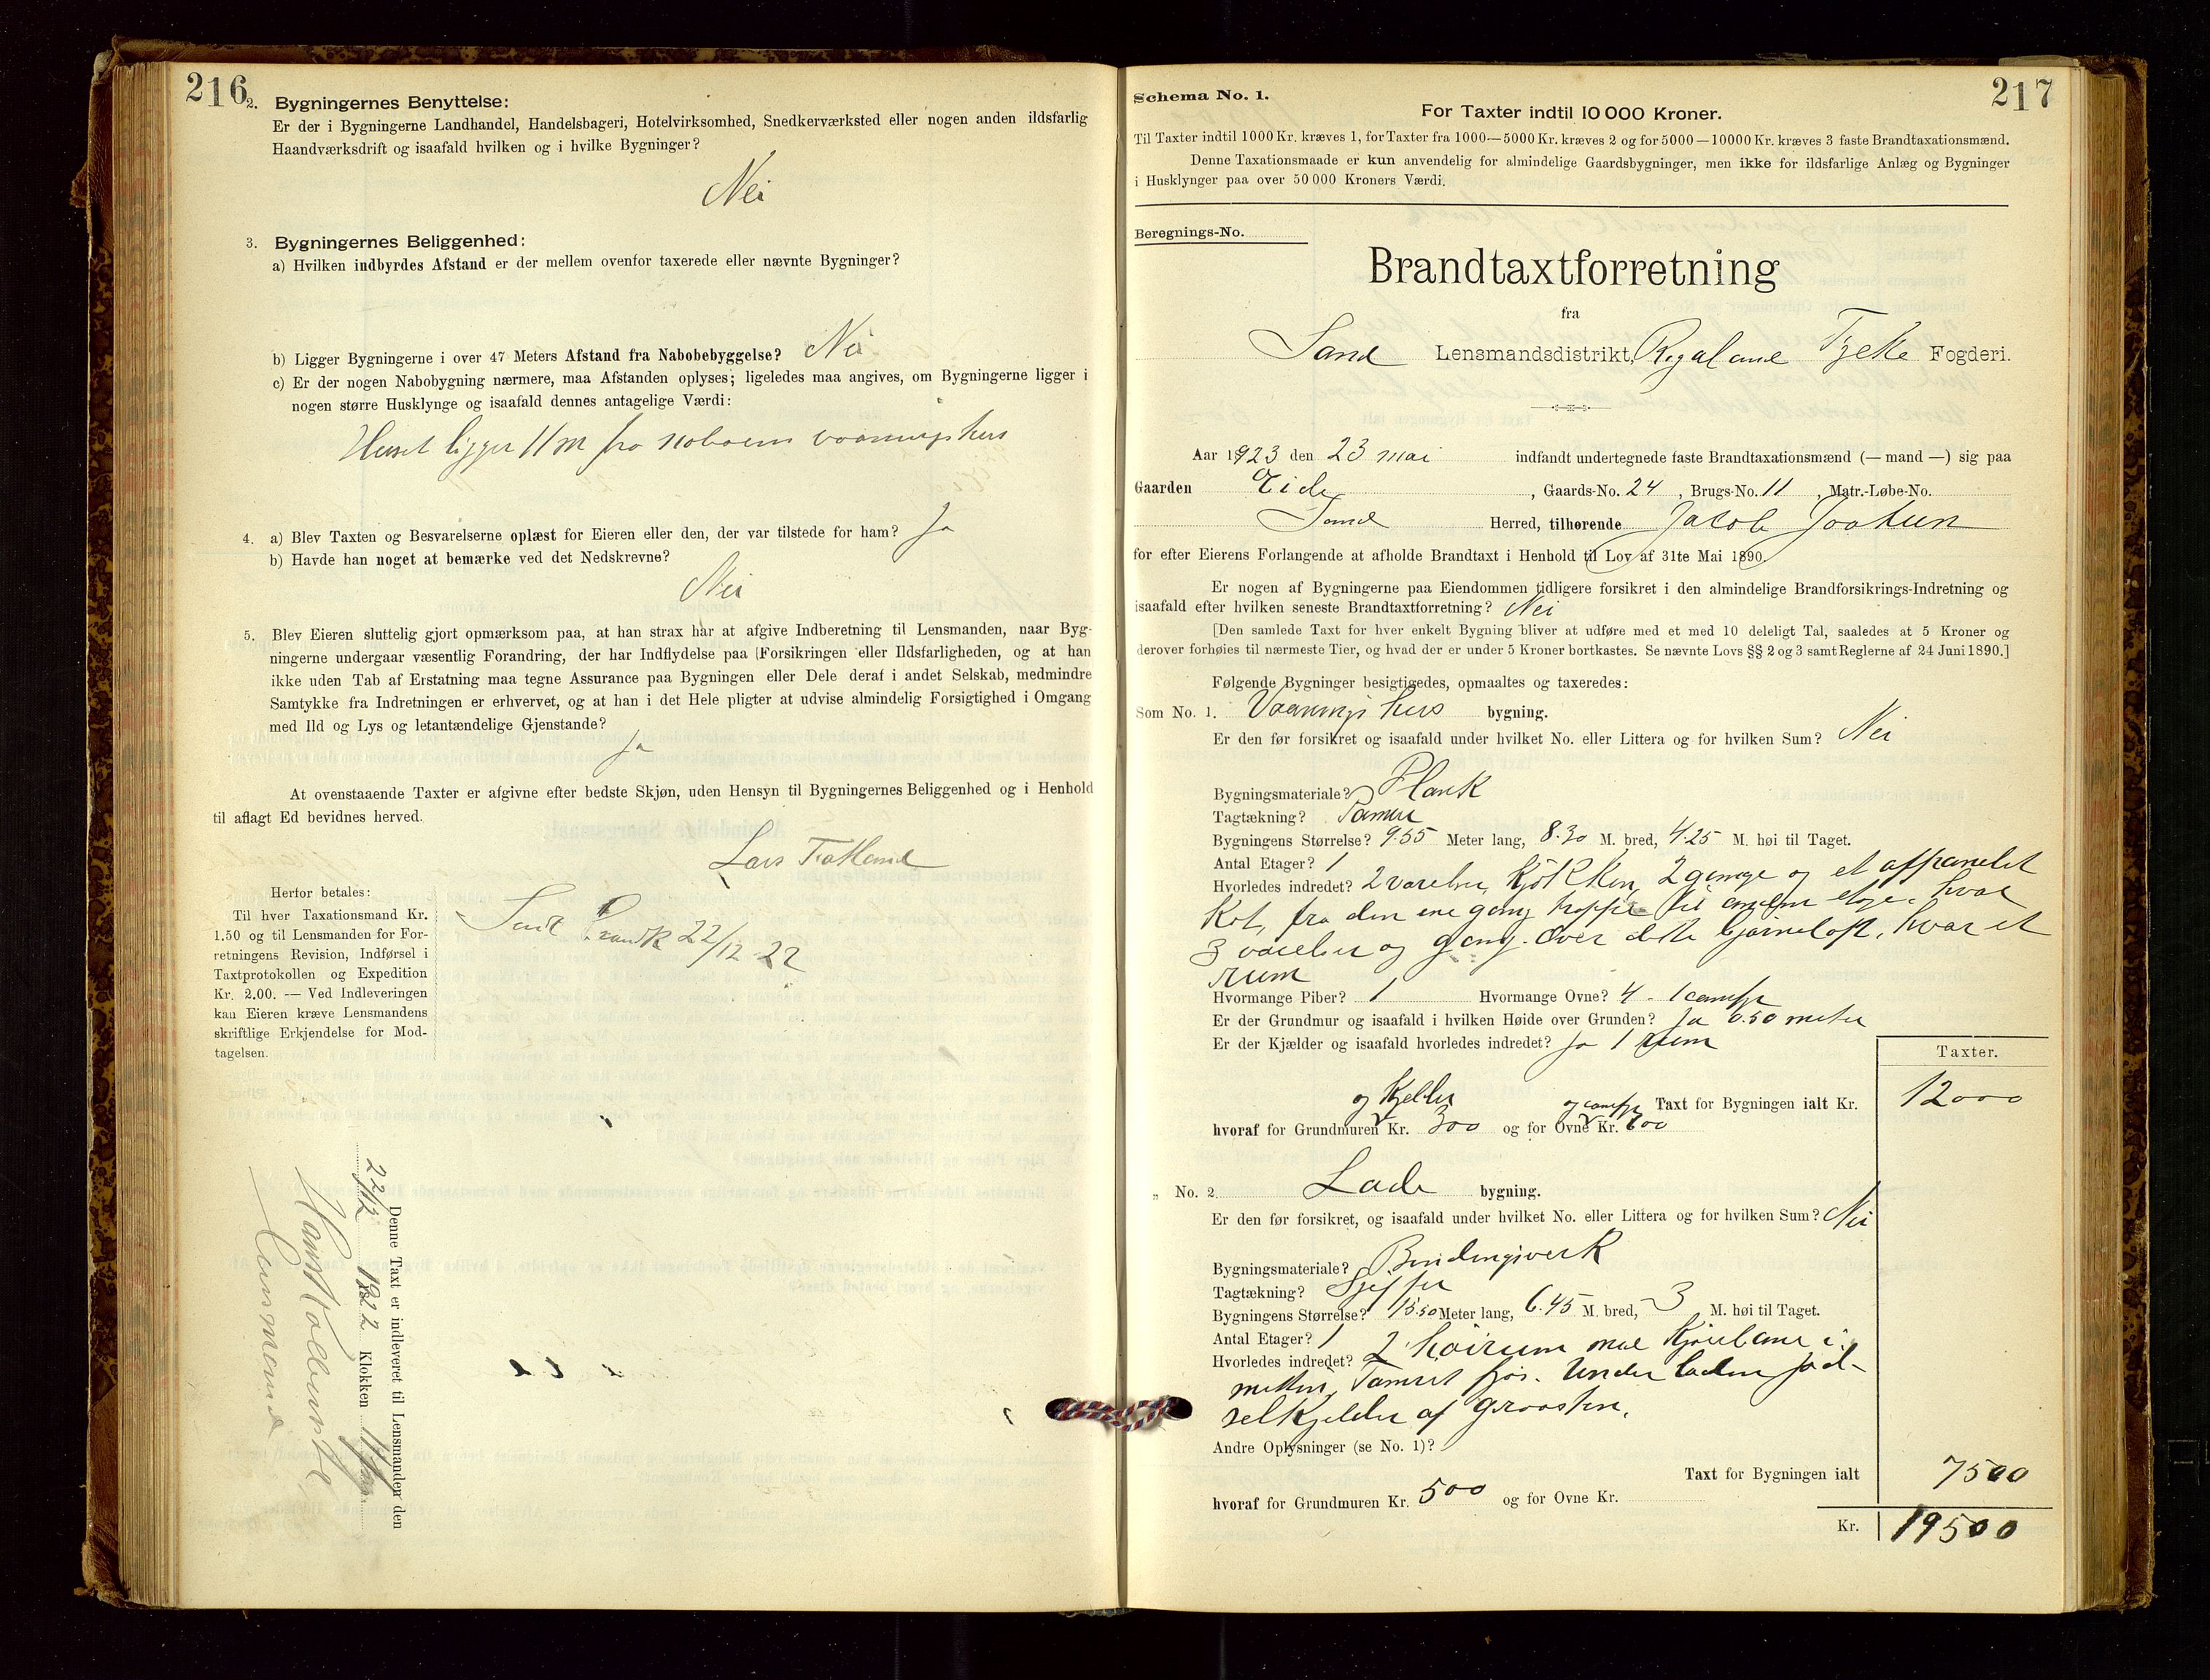 216
2. Bygningernes Benyttelse:
Er der i Bygningerne Landhandel, Handelsbageri, Hotelvirksomhed, Snedkerværksted eller nogen anden ildsfarlig
Haandværksdrift og isaafald hvilken og i hvilke Bygninger?
Nei
3. Bygningernes Beliggenhed:
a) Hvilken indbyrdes Afstand er der mellem ovenfor taxerede eller nævnte Bygninger?
b) Ligger Bygningerne i over 47 Meters Afstand fra Nabobebyggelse? Nei
c) Er der nogen Nabobygning nærmere, maa Afstanden oplyses; ligeledes maa angives, om Bygningerne ligger i
nogen større Husklynge og isaafald dennes antagelige Værdi:
Huset ligger 11 m fra naboens vaaningshus
4. a) Blev Taxten og Besvarelserne oplæst for Eieren eller den, der var tilstede for ham? Ja
b) Havde han noget at bemærke ved det Nedskrevne?
Nei
5. Blev Eieren sluttelig gjort opmærksom paa, at han strax har at afgive Indberetning til Lensmanden, naar Byg-
ningerne undergaar væsentlig Forandring, der har Indflydelse paa Forsikringen eller Ildsfarligheden, og at han
ikke uden Tab af Erstatning maa tegne Assurance paa Bygningen eller Dele deraf i andet Selskab, medmindre
Samtykke fra Indretningen er erhvervet, og at han i det Hele pligter at udvise almindelig Forsigtighed i Omgang
med Ild og Lys og letantændelige Gjenstande?
Ja
At ovenstaaende Taxter er afgivne efter bedste Skjøn, uden Hensyn til Bygningernes Beliggenhed og i Henhold
til aflagt Ed bevidnes herved.
Lars
Herfor betales:
Til hver Taxationsmand Kr.
1.50 og til Lensmanden for For-
retningens Revision, Indførsel i
Taxtprotokollen og Expedition
Kr. 2.00. — Ved Indleveringen
kan Eieren kræve Lensmandens
skriftlige Erkjendelse for Mod-
tagelsen.
22/12 22
Denne Taxt er indleveret til Lensmanden den
22/12 1922 Klokken
Lensmand
217
Schema No. 1.
For Taxter indtil 10 000 Kroner.
Til Taxter indtil 1000 Kr. kræves 1, for Taxter fra 1000—5000 Kr. kræves 2 og for 5000—10000 Kr. kræves 3 faste Brandtaxationsmænd.
Denne Taxationsmaade er kun anvendelig for almindelige Gaardsbygninger, men ikke for ildsfarlige Anlæg og Bygninger
i Husklynger paa over 50 000 Kroners Værdi.
Beregnings-No.
Brandtaxtforretning
fra
Sand Lensmandsdistrikt, Rogaland Fylke Fogderi.
Aar 1923 den 23 mai indfandt undertegnede faste Brandtaxationsmænd (— mand —) sig paa
Gaarden Eide, Gaards-No. 24, Brugs-No. 11, Matr.-Løbe-No.
Sand Herred, tilhørende Jacob
for efter Eierens Forlangende at afholde Brandtaxt i Henhold til Lov af 31te Mai 1890.
Er nogen af Bygningerne paa Eiendommen tidligere forsikret i den almindelige Brandforsikrings-Indretning og
isaafald efter hvilken seneste Brandtaxtforretning? Nei
[Den samlede Taxt for hver enkelt Bygning bliver at udføre med et med 10 deleligt Tal, saaledes at 5 Kroner og
derover forhøies til nærmeste Tier, og hvad der er under 5 Kroner bortkastes. Se nævnte Lovs §§ 2 og 3 samt Reglerne af 24 Juni 1890.]
Følgende Bygninger besigtigedes, opmaaltes og taxeredes:
Som No. 1. Vaaningshus bygning.
Er den før forsikret og isaafald under hvilket No. eller Littera og for hvilken Sum? Nei
Bygningsmateriale? Plank
Tagtækning? Panner
Bygningens Størrelse? 9.55 Meter lang, 8.30 M. bred, 4.25 M. høi til Taget.
Antal Etager? 1
Hvorledes indredet? 2 værelser, kjøkken, 2 gange og et afpanelet
kot, fra den ene gang trappe til anden etage, hvor
3 værelser og gang. Over dette hjørneloft, hvor et
rum
Hvormange Piber? 1 Hvormange Ovne? 4 - 1 comfyr
Er der Grundmur og isaafald i hvilken Høide over Grunden? Ja 0.50 meter
Er der Kjælder og isaafald hvorledes indredet? Ja 1 rum
Taxter.
og Kjelder og comfyr Taxt for Bygningen ialt Kr. 12000
hvoraf for Grundmuren Kr. 300 og for Ovne Kr. 600
„ No. 2. Lade bygning.
Er den før forsikret, og isaafald under hvilket No. eller Littera og for hvilken Sum? Nei
Bygningsmateriale? Bindingsverk
Tagtækning? Skiffer
Bygningens Størrelse? 15.50 Meter lang, 6.45 M. bred, 3 M. høi til Taget.
Antal Etager? 1
Hvorledes indredet? 2 høirum med kjørebane i
mitten, Tømret fjøs. Under laden jød-
selkjelder af graasten.
Andre Oplysninger (se No. 1)?
Taxt for Bygningen ialt 7500
hvoraf for Grundmuren Kr. 500 og for Ovne Kr.
Kr. 19500